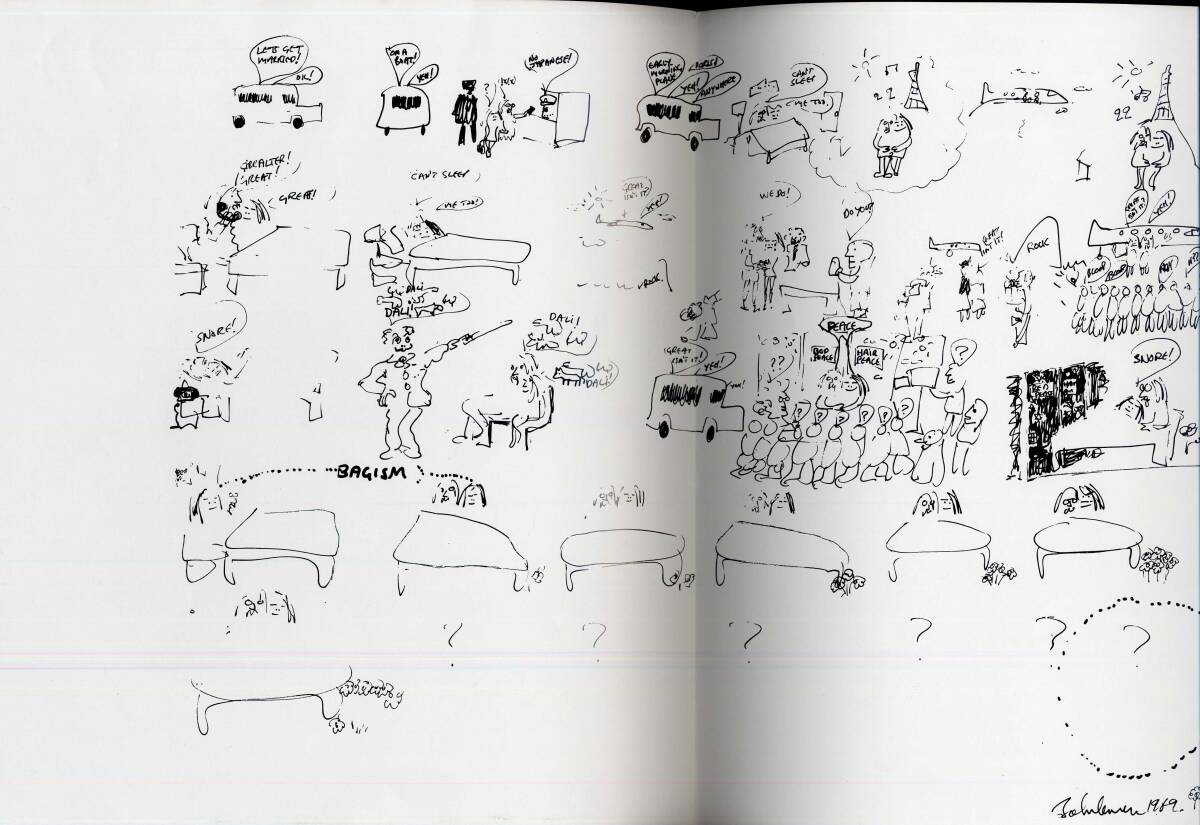 LETS GET
MARRIED!
OK!
ON A
BOAT!
YEH!
NO
JAPANESE!
EARLY
MORNING
PLANE
YEH!
ANYWHERE
CAN'T
SLEEP
ME TOO!
GIBRALTER!
GREAT!
GREAT!
CAN'T SLEEP
ME TOO!
GREAT
ISN'T IT!
YEH!
ROCK
WE DO!
DO YOU?
GREAT
ISN'T IT!
ROCK
GREAT
ISN'T IT?
YEH!
SNORE!
DALI
DALI
DALI!
DALI!
GREAT
ISN'T IT!
YEH!
YEH!
PEACE
BED
PEACE
HAIR
PEACE
? ?
? ? ? ? ?
?
SNORE!
BAGISM
? ? ? ? ? ?
John Lennon 1969.